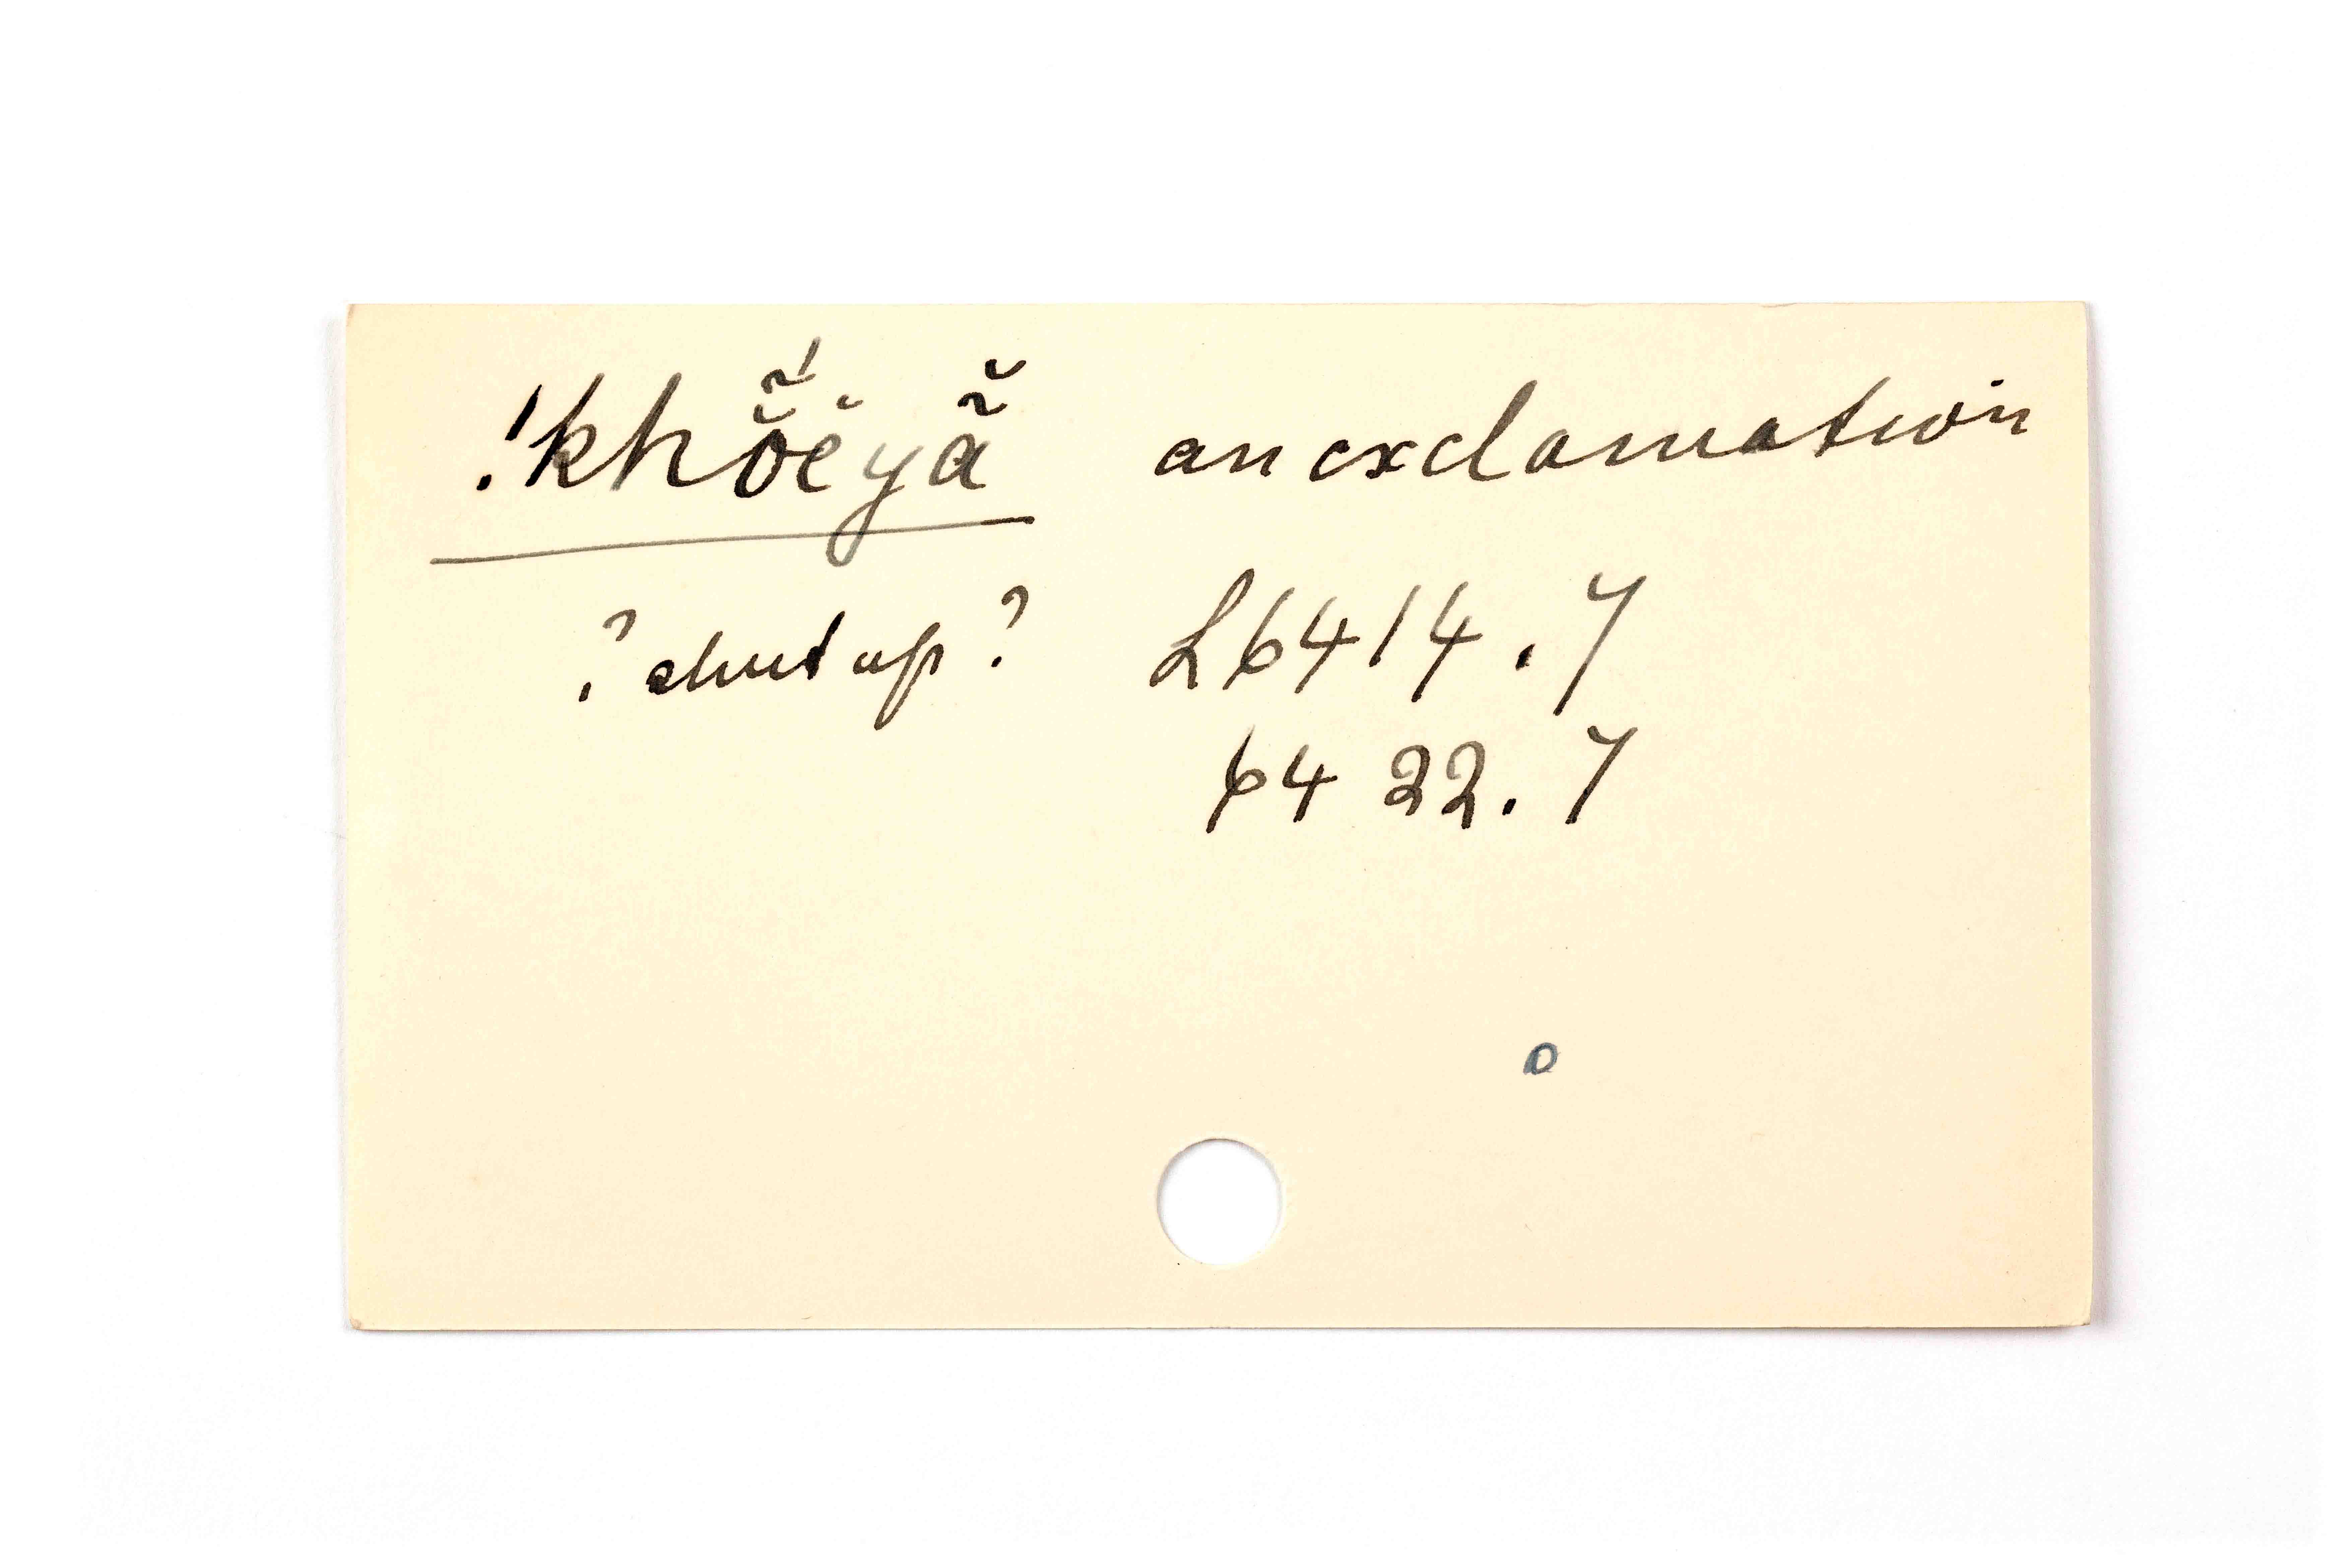 !khŏ̃́ĕyã̆ an exclamation
? shut up? L6414.7
6422.7
o